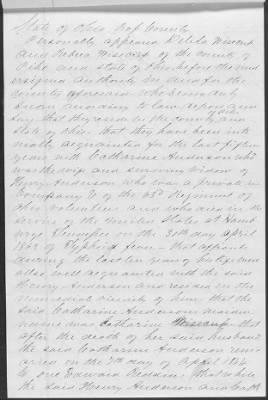 State of Ohio, Ross County
Personally appeared Delila Wiscarp
and Rebeca Wiscarp of the County of
Pike and State of Ohio before the und
ersigned authority in and for the
County aforesaid who being duly
sworn according to law depose and
say that they reside in the county and
state of Ohio that they have been int
imately acquainted for the last fifteen
years with Catharine Anderson who
was the wife and surviving widow of
Henry Anderson who was a private in
Company E of the 63d Regiment of
Ohio volunteers and who died in the
service of the United States at
Tennessee on the 30th day April
1862 of Typhoid fever that affiants
during the last ten years of his life were
also well acquainted with the said
Henry Anderson and resided in the
immediate vicinity of him that the
said Catharine Anderson maiden
name was Catharine Wiscarp that
after the death of her said husband
the said Catharine Anderson remar
ried on the day of April 1864
to one Edward that while
the said Henry Anderson and Cath